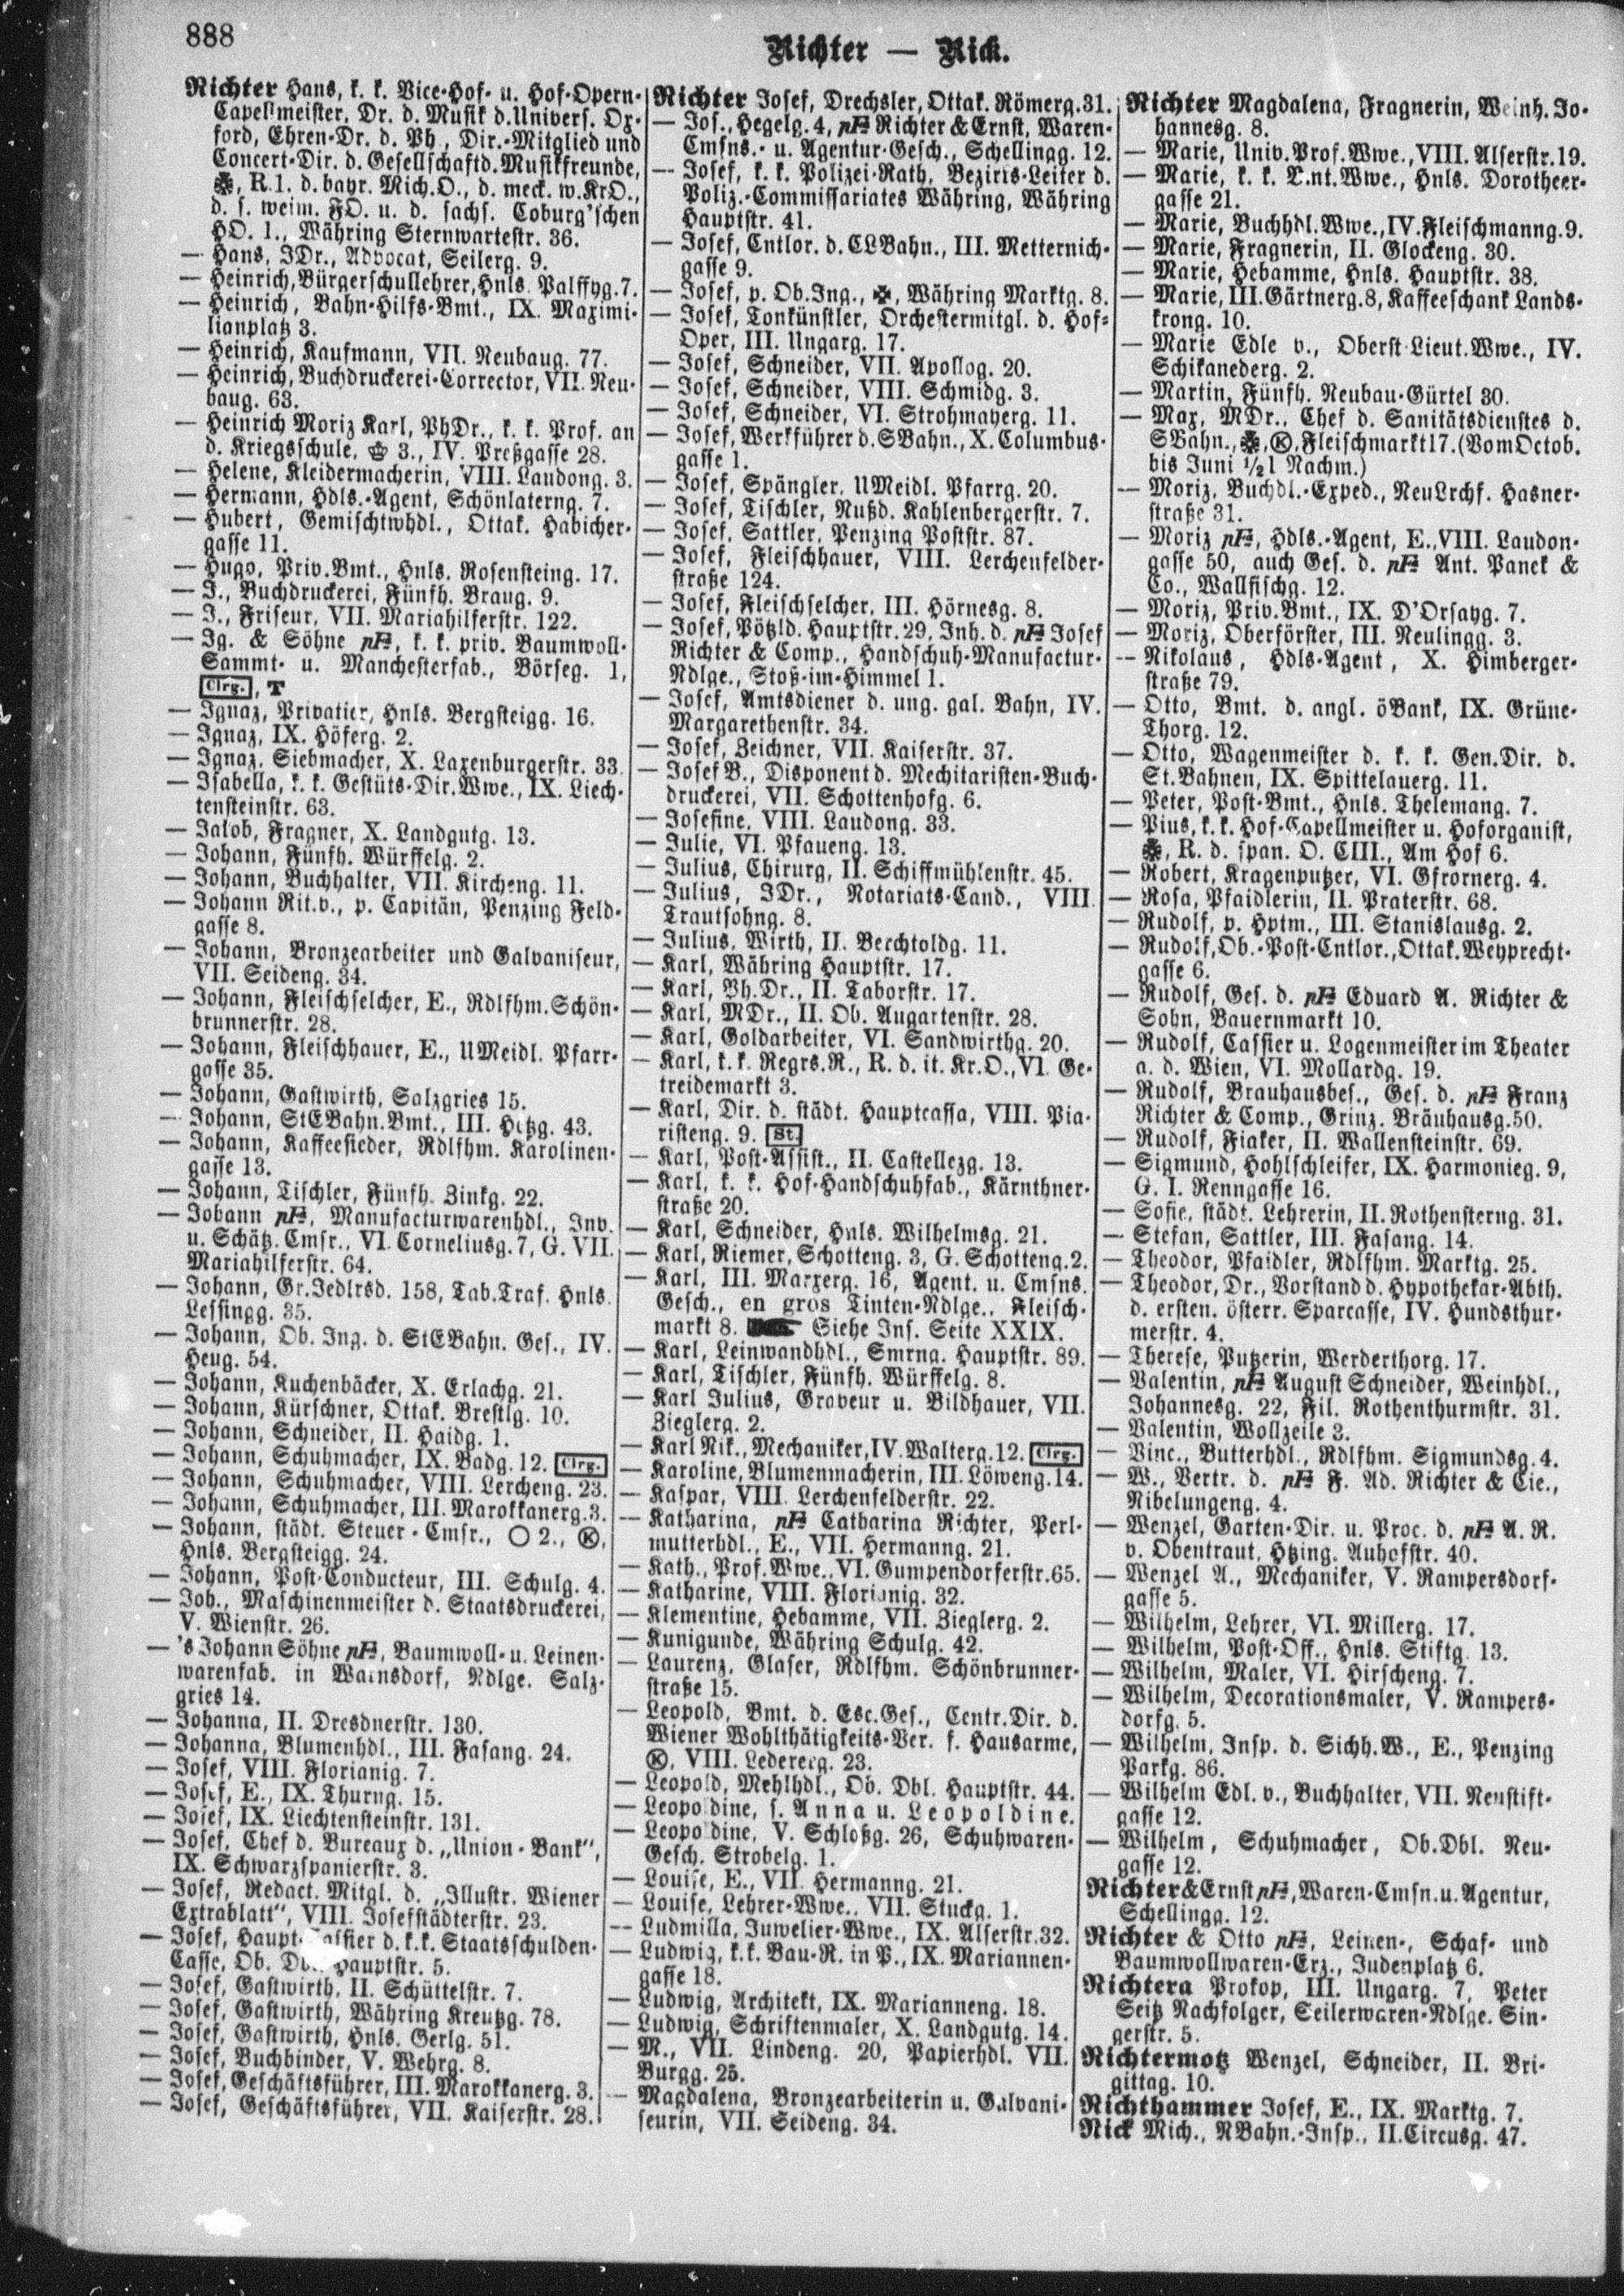 888
Richter — Rick.
Richter Hans, k. k. Vice-Hof- u. Hof-Opern-
Capellmeister, Dr. d. Musik d. Univers. Ox-
ford, Ehren-Dr. d. Ph., Dir.-Mitglied und
Concert-Dir. d. Gesellschaft d. Musikfreunde,
R. 1. d. bayr. Mich. O., d. meck. w. KrO.,
d. s. weim. FO. u. d. sachs. Coburg'schen
HO. 1., Währing Sternwartestr. 36.
— Hans, JDr., Advocat, Seilerg. 9.
— Heinrich, Bürgerschullehrer, Hnls. Palffyg. 7.
— Heinrich, Bahn-Hilfs-Bmt., IX. Maximi-
lianplatz 3.
— Heinrich, Kaufmann, VII. Neubaug. 77.
— Heinrich, Buchdruckerei-Corrector, VII. Neu-
baug. 63.
— Heinrich Moriz Karl, PhDr., k. k. Prof. an
d. Kriegsschule, 3., IV. Preßgasse 28.
— Helene, Kleidermacherin, VIII. Laudong. 3.
— Hermann, Hdls.-Agent, Schönlaterng. 7.
— Hubert, Gemischtwhdl., Ottak. Habicher-
gasse 11.
— Hugo, Priv.Bmt., Hnls. Rosensteing. 17.
— J., Buchdruckerei, Fünfh. Braug. 9.
— J., Friseur, VII. Mariahilferstr. 122.
— Ig. & Söhne pF, k. k. priv. Baumwoll-
Sammt- u. Manchesterfab., Börseg. 1,
Clrg., T
— Ignaz, Privatier, Hnls. Bergsteigg. 16.
— Ignaz, IX. Höferg. 2.
— Ignaz, Siebmacher, X. Laxenburgerstr. 33.
— Isabella, k. k. Gestüts-Dir.Wwe., IX. Liech-
tensteinstr. 63.
— Jakob, Fragner, X. Landgutg. 13.
— Johann, Fünfh. Würffelg. 2.
— Johann, Buchhalter, VII. Kircheng. 11.
— Johann Rit.v., p. Capitän, Penzing Feld-
gasse 8.
— Johann, Bronzearbeiter und Galvaniseur,
VII. Seideng. 34.
— Johann, Fleischselcher, E., Rdlfhm. Schön-
brunnerstr. 28.
— Johann, Fleischhauer, E., UMeidl. Pfarr-
gasse 35.
— Johann, Gastwirth, Salzgries 15.
— Johann, StEBahn.Bmt., III. Hetzg. 43.
— Johann, Kaffeesieder, Rdlfhm. Karolinen-
gasse 13.
— Johann, Tischler, Fünfh. Zinkg. 22.
— Johann pF, Manufacturwarenhdl., Inv.
u. Schätz. Cmsr., VI. Corneliusg. 7, G. VII.
Mariahilferstr. 64.
— Johann, Gr.Jedlrsd. 158, Tab.Traf. Hnls.
Lessingg. 35.
— Johann, Ob. Ing. d. StEBahn. Ges., IV.
Heug. 54.
— Johann, Kuchenbäcker, X. Erlachg. 21.
— Johann, Kürschner, Ottak. Brestlg. 10.
— Johann, Schneider, II. Haidg. 1.
— Johann, Schuhmacher, IX. Badg. 12. Clrg.
— Johann, Schuhmacher, VIII. Lercheng. 23.
— Johann, Schuhmacher, III. Marokkanerg. 3.
— Johann, städt. Steuer-Cmsr., O 2., Ⓚ,
Hnls. Bergsteigg. 24.
— Johann, Post-Conducteur, III. Schulg. 4.
— Joh., Maschinenmeister d. Staatsdruckerei,
V. Wienstr. 26.
— 's Johann Söhne pF, Baumwoll- u. Leinen-
warenfab. in Warnsdorf, Ndlge. Salz-
gries 14.
— Johanna, II. Dresdnerstr. 130.
— Johanna, Blumenhdl., III. Fasang. 24.
— Josef, VIII. Florianig. 7.
— Josef, E., IX. Thurng. 15.
— Josef, IX. Liechtensteinstr. 131.
— Josef, Chef d. Bureaux d. „Union-Bank",
IX. Schwarzspanierstr. 3.
— Josef, Redact. Mitgl. d. „Illustr. Wiener
Extrablatt", VIII. Josefstädterstr. 23.
— Josef, Haupt-Cassier d. k. k. Staatsschulden-
Casse, Ob. Dbl. Hauptstr. 5.
— Josef, Gastwirth, II. Schüttelstr. 7.
— Josef, Gastwirth, Währing Kreutzg. 78.
— Josef, Gastwirth, Hnls. Gerlg. 51.
— Josef, Buchbinder, V. Wehrg. 8.
— Josef, Geschäftsführer, III. Marokkanerg. 3.
— Josef, Geschäftsführer, VII. Kaiserstr. 28.
Richter Josef, Drechsler, Ottak. Römerg. 31.
— Jos., Hegelg. 4, pF Richter & Ernst, Waren-
Cmsns.- u. Agentur-Gesch., Schellingg. 12.
— Josef, k. k. Polizei-Rath, Bezirks-Leiter d.
Poliz.-Commissariates Währing, Währing
Hauptstr. 41.
— Josef, Cntlor. d. CLBahn., III. Metternich-
gasse 9.
— Josef, p. Ob.Ing., Währing Marktg. 8.
— Josef, Tonkünstler, Orchestermitgl. d. Hof-
Oper, III. Ungarg. 17.
— Josef, Schneider, VII. Apollog. 20.
— Josef, Schneider, VIII. Schmidg. 3.
— Josef, Schneider, VI. Strohmayerg. 11.
— Josef, Werkführer d. SBahn., X. Columbus-
gasse 1.
— Josef, Spängler, UMeidl. Pfarrg. 20.
— Josef, Tischler, Nußd. Kahlenbergerstr. 7.
— Josef, Sattler, Penzing Poststr. 87.
— Josef, Fleischhauer, VIII. Lerchenfelder-
straße 124.
— Josef, Fleischselcher, III. Hörnesg. 8.
— Josef, Pötzld. Hauptstr. 29, Inh. d. pF Josef
Richter & Comp., Handschuh-Manufactur-
Ndlge., Stoß-im-Himmel 1.
— Josef, Amtsdiener d. ung. gal. Bahn, IV.
Margarethenstr. 34.
— Josef, Zeichner, VII. Kaiserstr. 37.
— Josef B., Disponent d. Mechitaristen-Buch-
druckerei, VII. Schottenhofg. 6.
— Josefine, VIII. Laudong. 33.
— Julie, VI. Pfaueng. 13.
— Julius, Chirurg, II. Schiffmühlenstr. 45.
— Julius, JDr., Notariats-Cand., VIII.
Trautsohng. 8.
— Julius, Wirth, II. Bechtoldg. 11.
— Karl, Währing Hauptstr. 17.
— Karl, Ph.Dr., II. Taborstr. 17.
— Karl, MDr., II. Ob. Augartenstr. 28.
— Karl, Goldarbeiter, VI. Sandwirthg. 20.
— Karl, k. k. Regrs.R., R. d. it. Kr.O., VI. Ge-
treidemarkt 3.
— Karl, Dir. d. städt. Hauptcassa, VIII. Pia-
risteng. 9. St.
— Karl, Post-Assist., II. Castellezg. 13.
— Karl, k. k. Hof-Handschuhfab., Kärnthner-
straße 20.
— Karl, Schneider, Hnls. Wilhelmsg. 21.
— Karl, Riemer, Schotteng. 3, G. Schotteng. 2.
— Karl, III. Marxerg. 16, Agent. u. Cmsns.
Gesch., en gros Tinten-Ndlge., Fleisch-
markt 8. Siehe Ins. Seite XXIX.
— Karl, Leinwandhdl., Smrng. Hauptstr. 89.
— Karl, Tischler, Fünfh. Würffelg. 8.
— Karl Julius, Graveur u. Bildhauer, VII.
Zieglerg. 2.
— Karl Nik., Mechaniker, IV. Walterg. 12. Clrg.
— Karoline, Blumenmacherin, III. Löweng. 14.
— Kaspar, VIII. Lerchenfelderstr. 22.
— Katharina, pF Catharina Richter, Perl-
mutterhdl., E., VII. Hermanng. 21.
— Kath., Prof.Wwe., VI. Gumpendorferstr. 65.
— Katharine, VIII. Florianig. 32.
— Klementine, Hebamme, VII. Zieglerg. 2.
— Kunigunde, Währing Schulg. 42.
— Laurenz, Glaser, Rdlfhm. Schönbrunner-
straße 15.
— Leopold, Bmt. d. Esc.Ges., Centr.Dir. d.
Wiener Wohlthätigkeits-Ver. f. Hausarme,
Ⓚ, VIII. Ledererg. 23.
— Leopold, Mehlhdl., Ob. Dbl. Hauptstr. 44.
— Leopoldine, s. Anna u. Leopoldine.
— Leopoldine, V. Schloßg. 26, Schuhwaren-
Gesch. Strobelg. 1.
— Louise, E., VII. Hermanng. 21.
— Louise, Lehrer-Wwe., VII. Stuckg. 1.
— Ludmilla, Juwelier-Wwe., IX. Alserstr. 32.
— Ludwig, k.k. Bau-R. in P., IX. Mariannen-
gasse 18.
— Ludwig, Architekt, IX. Marianneng. 18.
— Ludwig, Schriftenmaler, X. Landgutg. 14.
— M., VII. Lindeng. 20, Papierhdl. VII.
Burgg. 25.
— Magdalena, Bronzearbeiterin u. Galvani-
seurin, VII. Seideng. 34.
Richter Magdalena, Fragnerin, Weinh. Jo-
hannesg. 8.
— Marie, Univ.Prof.Wwe., VIII. Alserstr. 19.
— Marie, k. k. Lnt.Wwe., Hnls. Dorotheer-
gasse 21.
— Marie, Buchhdl.Wwe., IV. Fleischmanng. 9.
— Marie, Fragnerin, II. Glockeng. 30.
— Marie, Hebamme, Hnls. Hauptstr. 38.
— Marie, III. Gärtnerg. 8, Kaffeeschank Lands-
krong. 10.
— Marie Edle v., Oberst-Lieut.Wwe., IV.
Schikanederg. 2.
— Martin, Fünfh. Neubau-Gürtel 30.
— Max, MDr., Chef d. Sanitätsdienstes d.
SBahn., Ⓚ, Fleischmarkt 17. (Vom Octob.
bis Juni ½1 Nachm.)
— Moriz, Buchdl.-Exped., NeuLrchf. Hasner-
straße 31.
— Moriz pF, Hdls.-Agent, E., VIII. Laudon-
gasse 50, auch Ges. d. pF Ant. Panek &
Co., Wallfischg. 12.
— Moriz, Priv.Bmt., IX. D'Orsayg. 7.
— Moriz, Oberförster, III. Neulingg. 3.
— Nikolaus, Hdls-Agent, X. Himberger-
straße 79.
— Otto, Bmt. d. angl. öBank, IX. Grüne-
Thorg. 12.
— Otto, Wagenmeister d. k. k. Gen.Dir. d.
St.Bahnen, IX. Spittelauerg. 11.
— Peter, Post-Bmt., Hnls. Thelemang. 7.
— Pius, k. k. Hof-Capellmeister u. Hoforganist,
R. d. span. O. CIII., Am Hof 6.
— Robert, Kragenputzer, VI. Gfrornerg. 4.
— Rosa, Pfaidlerin, II. Praterstr. 68.
— Rudolf, p. Hptm., III. Stanislausg. 2.
— Rudolf, Ob.-Post-Cntlor., Ottak. Weyprecht-
gasse 6.
— Rudolf, Ges. d. pF Eduard A. Richter &
Sohn, Bauernmarkt 10.
— Rudolf, Cassier u. Logenmeister im Theater
a. d. Wien, VI. Mollardg. 19.
— Rudolf, Brauhausbes., Ges. d. pF Franz
Richter & Comp., Grinz. Bräuhausg. 50.
— Rudolf, Fiaker, II. Wallensteinstr. 69.
— Sigmund, Hohlschleifer, IX. Harmonieg. 9,
G. I. Renngasse 16.
— Sofie, städt. Lehrerin, II. Rothensterng. 31.
— Stefan, Sattler, III. Fasang. 14.
— Theodor, Pfaidler, Rdlfhm. Marktg. 25.
— Theodor, Dr., Vorstand d. Hypothekar-Abth.
d. ersten. österr. Sparcasse, IV. Hundsthur-
merstr. 4.
— Therese, Putzerin, Werderthorg. 17.
— Valentin, pF August Schneider, Weinhdl.,
Johannesg. 22, Fil. Rothenthurmstr. 31.
— Valentin, Wollzeile 3.
— Vinc., Butterhdl., Rdlfhm. Sigmundsg. 4.
— W., Vertr. d. pF F. Ad. Richter & Cie.,
Nibelungeng. 4.
— Wenzel, Garten-Dir. u. Proc. d. pF A. R.
v. Obentraut, Htzing. Auhofstr. 40.
— Wenzel A., Mechaniker, V. Rampersdorf-
gasse 5.
— Wilhelm, Lehrer, VI. Millerg. 17.
— Wilhelm, Post-Off., Hnls. Stiftg. 13.
— Wilhelm, Maler, VI. Hirscheng. 7.
— Wilhelm, Decorationsmaler, V. Rampers-
dorfg. 5.
— Wilhelm, Insp. d. Sichh.W., E., Penzing
Parkg. 86.
— Wilhelm Edl. v., Buchhalter, VII. Neustift-
gasse 12.
— Wilhelm, Schuhmacher, Ob.Dbl. Neu-
gasse 12.
Richter & Ernst pF, Waren-Cmsn. u. Agentur,
Schellingg. 12.
Richter & Otto pF, Leinen-, Schaf- und
Baumwollwaren-Erz., Judenplatz 6.
Richtera Prokop, III. Ungarg. 7, Peter
Seitz Nachfolger, Seilerwaren-Ndlge. Sin-
gerstr. 5.
Richtermotz Wenzel, Schneider, II. Bri-
gittag. 10.
Richthammer Josef, E., IX. Marktg. 7.
Rick Mich., NBahn.-Insp., II. Circusg. 47.